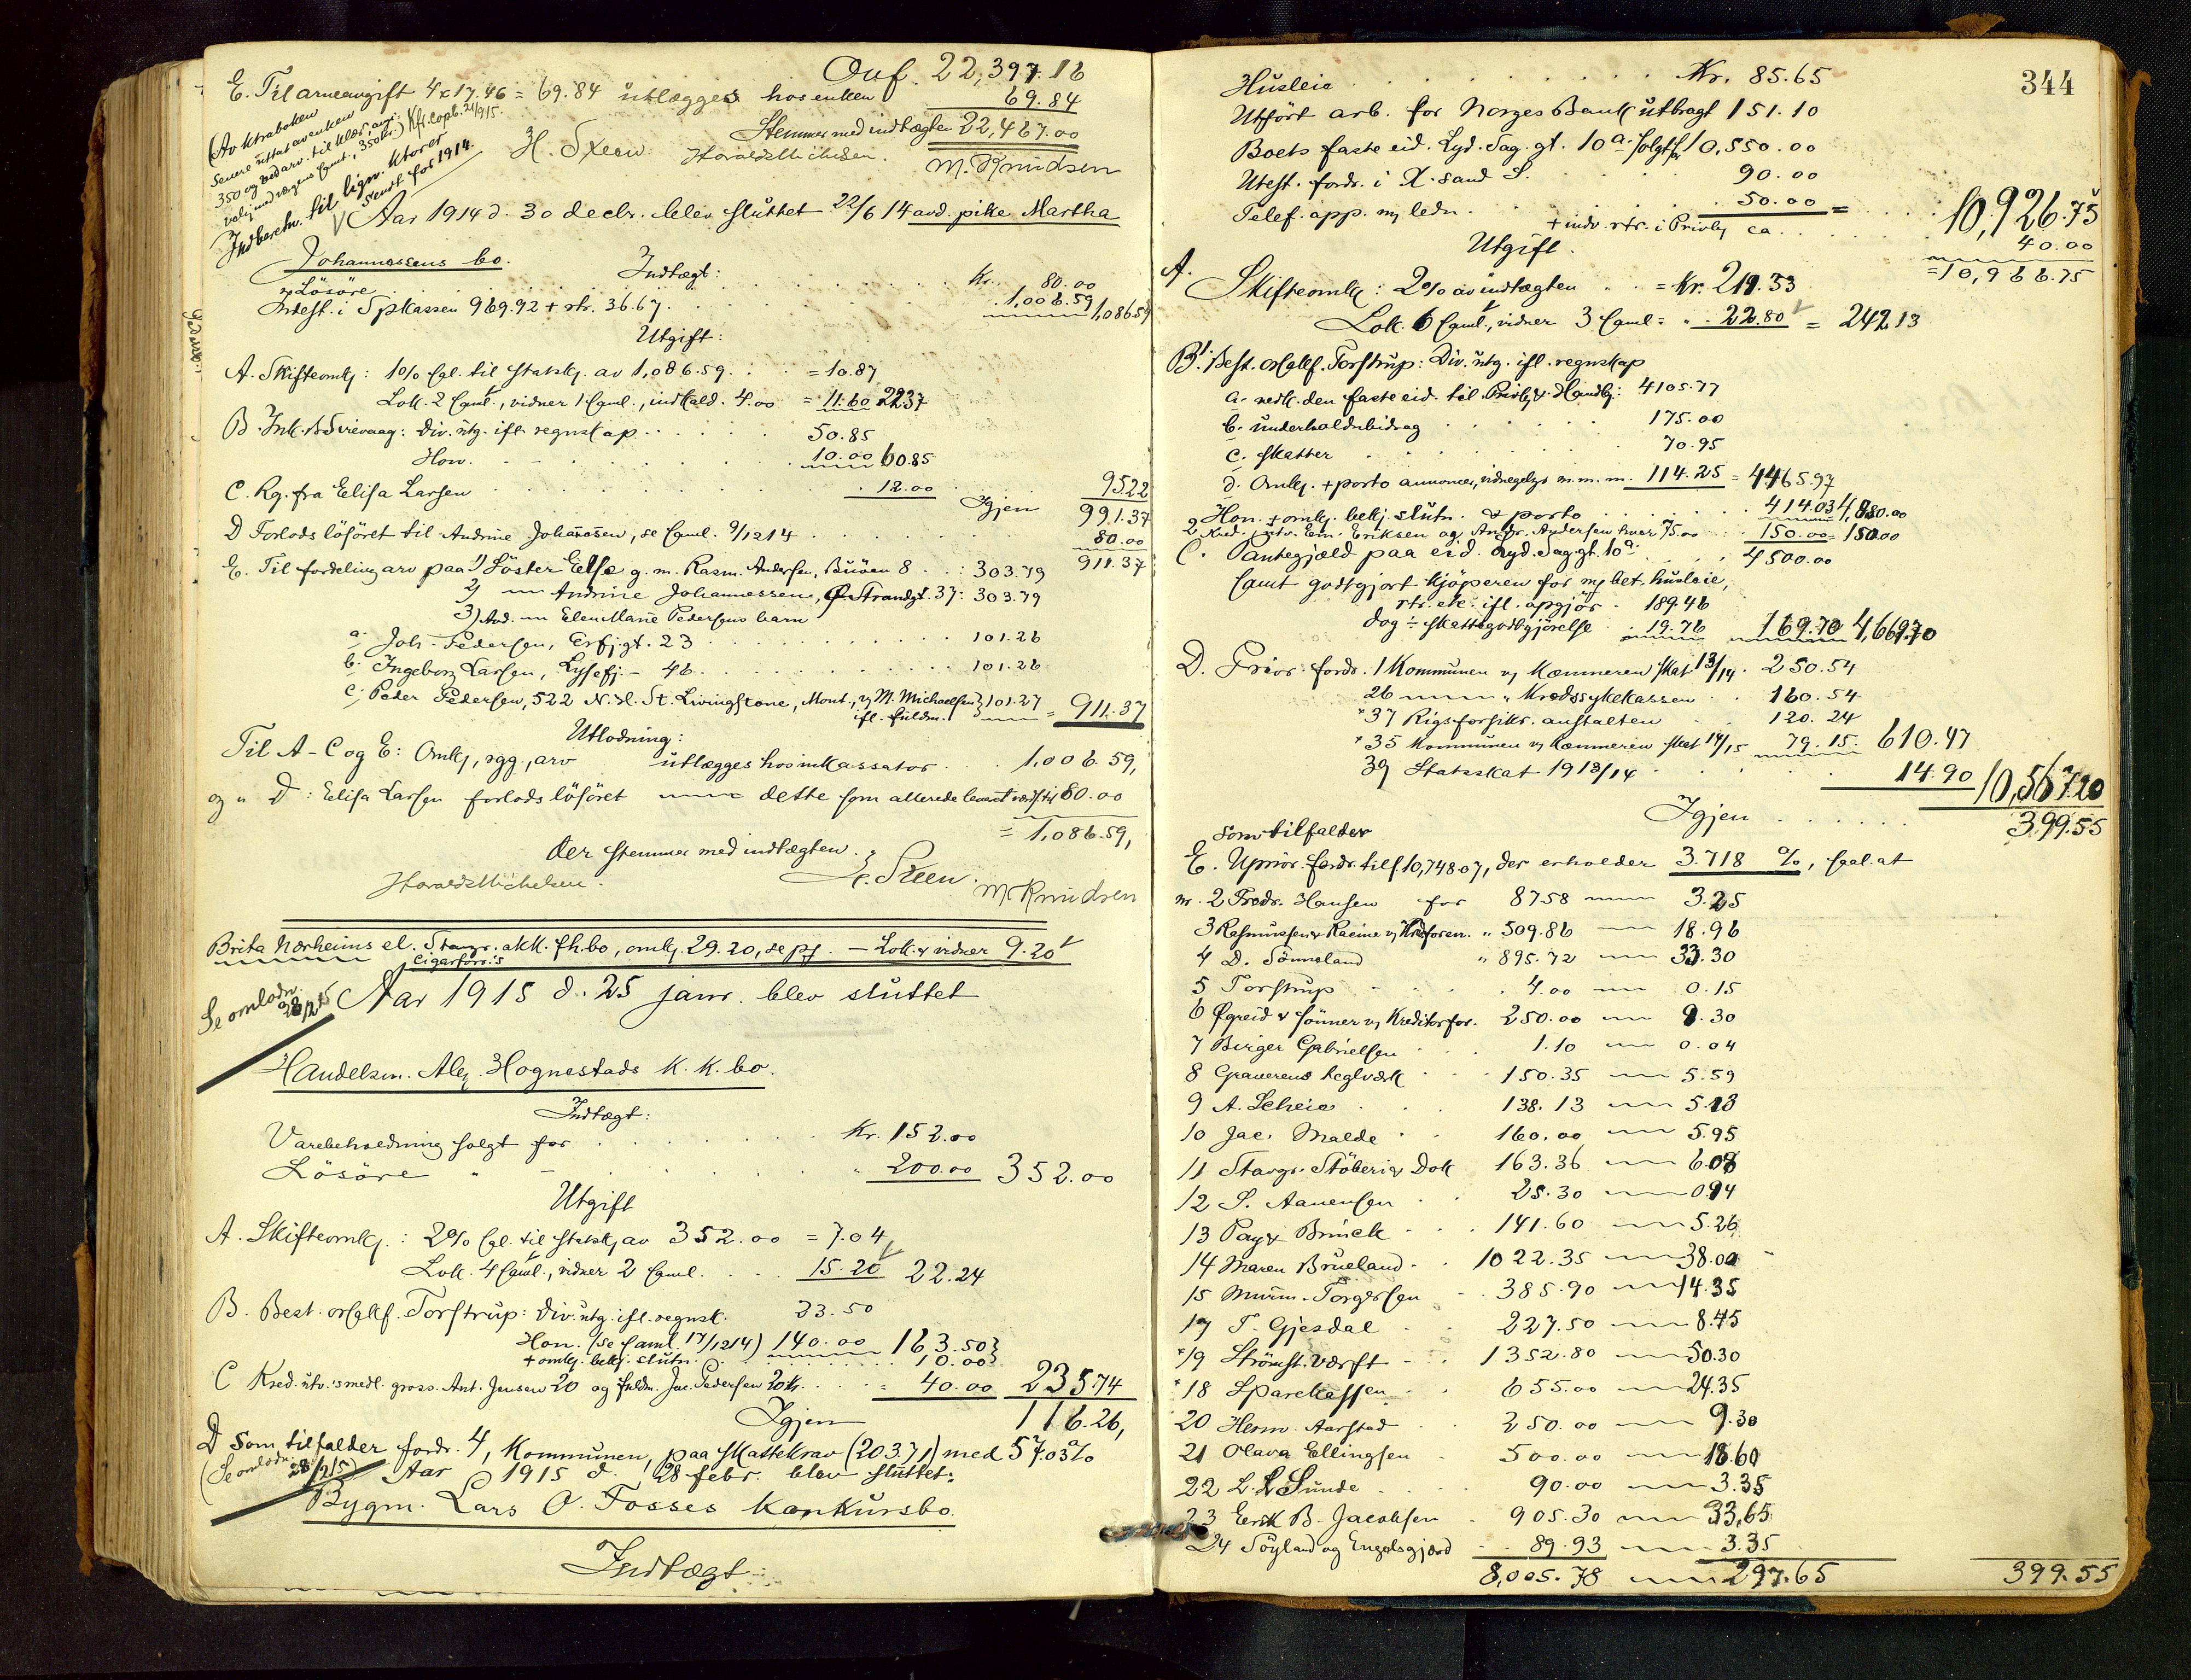 Ovf. 22,397.16
E. Til arveavgift 4 x 17.46 = 69.84 utlægges hos enken 69.84
Stemmer med indtægten 22,467.00
(Av ktraboken
senere uttat av enken
350 og ved arv. til klær, 
H. Steen. Harald Michelsen. M. Knudsen
Indberetn. til lign. ktorer
sendt for 1914.
Aar 1914 d. 30 decbr. blev sluttet 22/6 14 avd. pike Martha
Johannessens bo.
Indtægt:
Løsøre Kr. 80.00
Indest. i Spkassen 969.92 + rtr. 36.67. 1,006.59 1,086.59
Utgift:
A. Skifteomk: 1% sgl. til statsk. av 1,086.59 = 10.87
Lok. 2 saml., vidner 1 saml., indkald. 4.00 = 11.60 22.37
B. Ink. B. Sirevaag: Div. utg. ifl. regnskap 50.85
Hon. 10.00 60.85
C. Rg. fra Elisa Larsen 12.00 95.22
Igjen 991.37
D Forlods løsøret til Andrine Johannesen, se saml. 9/12 14 80.00
911.37
E. Til fordeling arv paa 1) Søster Else g. m. Rasm. Andersen, Buøen 8 : 303.79
2) Andrine Johannessen, Ø. Strandgt. 37: 303.79
3) Avd. Elen Marie Pedersens barn
a. Joh. Pedersen, Erfj.gt. 23 101.26
b. Ingeborg Larsen, Lysefj. – 46 101.26
c. Peder Pedersen, 522 N. H. St. Livingstone, Mont., v/ M. Michaelsen 101.27
ifl. fuldm. = 911.37
Utlodning:
Til A–C og E: Omk, rgg., arv utlægges hos inkassator 1,006.59,
og " D: Elisa Larsen forlods løsøret dette som allerede levert værdi 80.00
= 1,086.59,
der stemmer med indtægten.
Harald Michelsen. H. Steen. M. Knudsen
Brita Nærheims el. Stavgr. akk. fh.bo, omk. 29.20, se pf. – Lok. & vidner 9.20
Cigarforr.'s
Se omlodn. 28/2 15
Aar 1915 d. 25 janr. blev sluttet
Handelsm. Alex. Hognestads k. k. bo.
Indtægt:
Varebeholdning solgt for Kr. 152.00
Løsøre " 200.00 352.00
Utgift
A. Skifteomk.: 2% sgl. til statsk. av 352.00 = 7.04
Lok. 4 saml., vidner 2 saml. 15.20 22.24
B. Best. orsakf. Torstrup: Div. utg. ifl. regnsk. 23.50
Hon. (se saml. 17/12 14) 140.00 163.50
+ omk. bekj. slutn. 10.00
C Kred. utv.'s medl. gross. Ant. Jensen 20 og fuldm. Jac. Pedersen 20 kr. = 40.00 235.74
Igjen 116.26,
D Som tilfalder fordr. 4, Kommunen, paa skattekrav (203.71) med 57.03%
(Se omlodn. 28/2 15)
Aar 1915 d. 28 febr. blev sluttet:
Bygm. Lars O. Fosses konkursbo.
Indtægt:
344
Husleie Kr. 85.65
Utført arb. for Norges Bank utbragt 151.10
Boets faste eid. Lyd. Sag. gt. 10 a. solgt f. 10,550.00
Utest. fordr. i K. sand S. 90.00
Telef. app. m/ ledn. 50.00 = 10,926.75
+ indv. rtr. i Privbk ca. 40.00
= 10,966.75
Utgift.
A. Skifteomk: 2% av indtægten = Kr. 219.33
Lok. 6 saml., vidner 3 saml: " 22.80 = 242.13
B1. Best. orsakf. Torstrup: Div. utg. ifl. regnskap
a. vedk. den faste eid. til Privbk & Handbk: 4105.77
b. underholdsbidrag 175.00
c. skatter 70.95
d. Omk. + porto annoncer, vidnegelyr m. m. m. 114.25 = 4465.97
Hon. + omk. bekj. slutn. & porto 414.03 4,880.00
2 Kred. utv. Em. Eriksen og Andr. Andersen hver 75.00 150.00 = 150.00
C. Pantegjæld paa eid. Lyd. Sag. gt. 10 a. 4500.00
samt godtgjort kjøperen for bet. husleie,
rtr. etc. ifl. opgjør 189.46
dog ÷ skattegodtgjørelse 19.76 169.70 4,669.70
D. Prior. fordr. 1 Kommunen v/ Kæmneren skat 13/14 250.54
26 " Kredssykekassen 160.54
" 37 Rigsforsikr. anstalten 120.24
" 35 Kommunen v/ Kæmneren skat 14/15 79.15 610.47
39 Statsskat 1913/14 14.90 10,567.20
Igjen 399.55
som tilfalder
E. Uprior. fordr. tils. 10,748.07, der erholder 3.718 %, saal. at
nr. 2 Fredr. Hansen for 87.58 3.25
3 Rasmussen & Racine v/ Kredforen. " 509.86 18.96
4 D. Sømneland " 895.72 33.30
5 Torstrup 4.00 0.15
6 Øgreid & Sønner v/ Kreditorfor. 250.00 9.30
7 Birger Gabrielsen 1.10 0.04
8 Graverens teglværk 150.35 5.59
9 A. Scheie 138.13 5.13
10 Jac. Malde 160.00 5.95
11 Stavgr. Støberi & Dok 163.36 6.08
12 S. Aanensen 25.30 0.94
13 Pay & Brinck 141.60 5.26
14 Maren Brueland 1022.35 38.00
15 Murm. Torgersen 385.90 14.35
17 T. Gjesdal 227.50 8.45
19 Strømst. værft 1352.80 50.30
18 Sparekassen 655.00 24.35
20 Herm. Aarstad 250.00 9.30
21 Olava Ellingsen 500.00 18.60
22 L. L. Sunde 90.00 3.35
23 Eerik B. Jacobsen 905.30 33.65
24 Søyland og Engelsgjærd 89.93 3.35
8,005.78 297.65 399.55